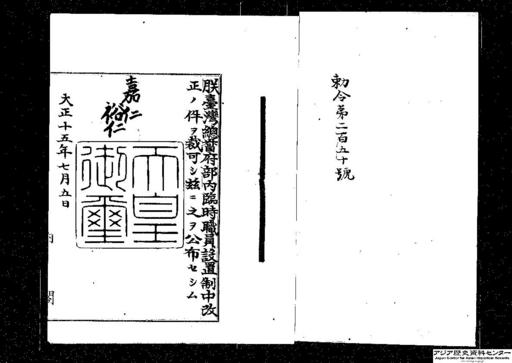 勅令第二百五十號
朕臺灣總督府部內臨時職員設置制中改
正ノ件ヲ裁可シ茲ニ之ヲ公布セシム
嘉仁
裕仁
天皇
御璽
大正十五年七月五日
內閣
アジア歴史資料センター
Japan Center for Asian Historical Records